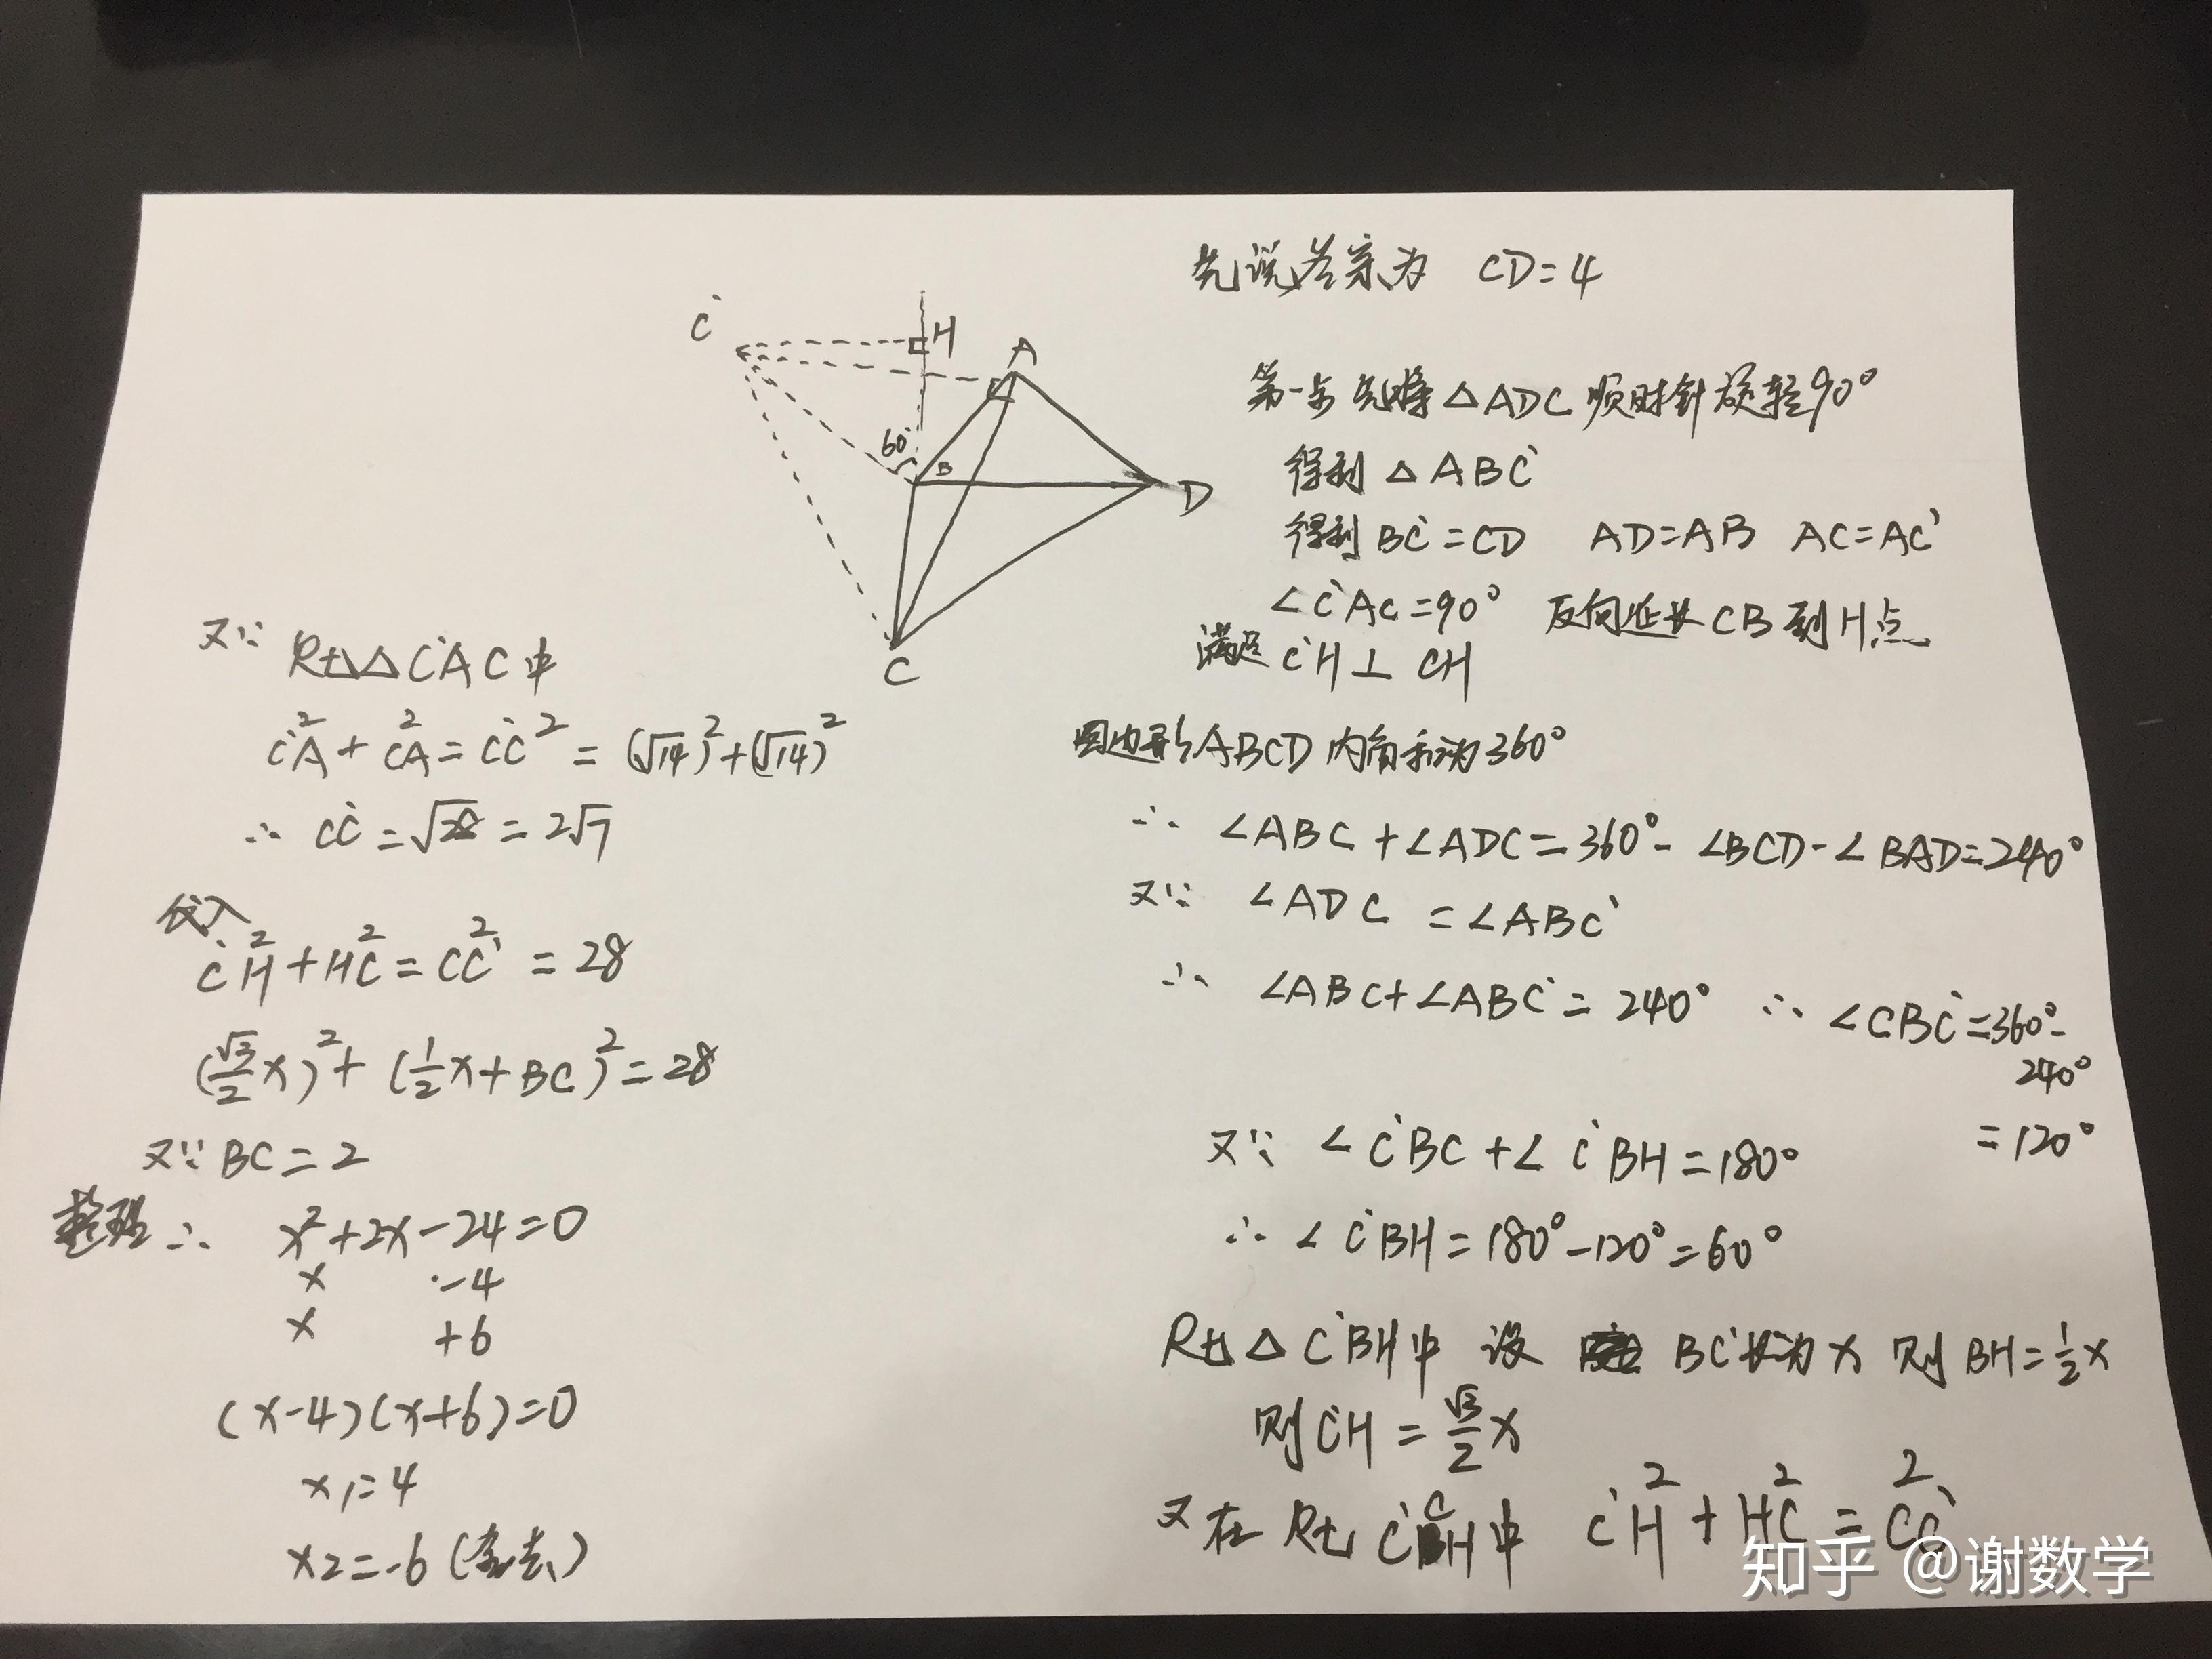 先说答案为 CD=4
C'
H
A
60°
B
D
C
第一步 先将△ADC 顺时针旋转90°
得到 △ABC'
得到 BC'=CD AD=AB AC=AC'
∠C'AC=90° 反向延长CB到H点
满足 C'H⊥CH
四边形ABCD内角和为360°
∴ ∠ABC+∠ADC=360°-∠BCD-∠BAD=240°
又∵ ∠ADC=∠ABC'
∴ ∠ABC+∠ABC'=240° ∴ ∠CBC'=360°-
240°
=120°
又∵ ∠C'BC+∠C'BH=180°
∴ ∠C'BH=180°-120°=60°
Rt△C'BH中 设 BC'长为x 则BH=½x
则C'H=√3/2 x
又在 Rt C'CH中 C'H²+HC²=CC'²
又∵ Rt△C'AC中
C'A²+CA²=CC'²=(√14)²+(√14)²
∴ CC'=√28=2√7
代入
C'H²+HC²=CC'²=28
(√3/2 x)²+(½x+BC)²=28
又∵ BC=2
整理∴ x²+2x-24=0
x -4
x +6
(x-4)(x+6)=0
x1=4
x2=-6(舍去)
知乎 @谢数学